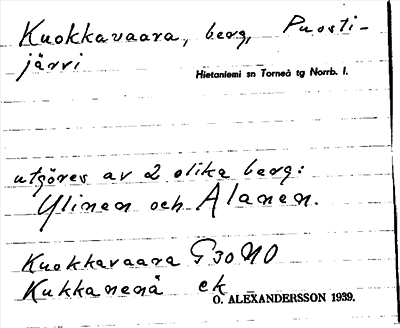 Kuokkavaara, berg, Puosti-
järvi
Hietaniemi sn Torneå tg Norrb. l.
utgöres av 2 olika berg:
Ylinen och Alanen.
Kuokkavaara G30 NO
Kukkanenä ek
O. ALEXANDERSSON 1939.